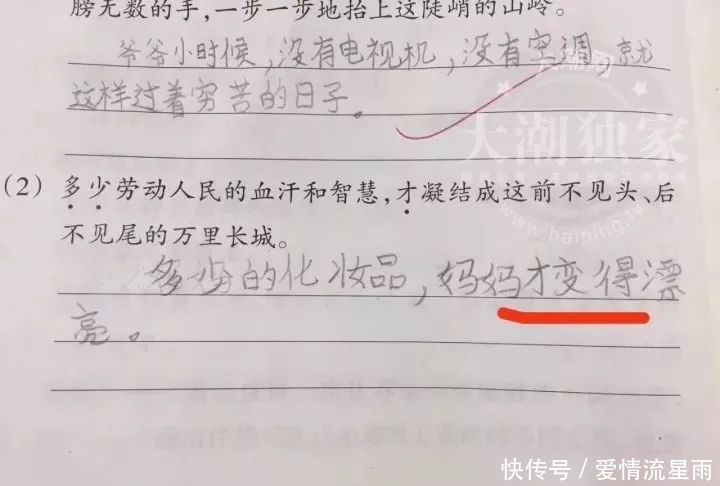 膀无数的手,一步一步地抬上这陡峭的山岭。
爷爷小时候,没有电视机,没有空调,就
这样过着穷苦的日子。
大潮独家
(2) 多少劳动人民的血汗和智慧,才凝结成这前不见头、后
不见尾的万里长城。
多少的化妆品,妈妈才变得漂
亮。
快传号/爱情流星雨